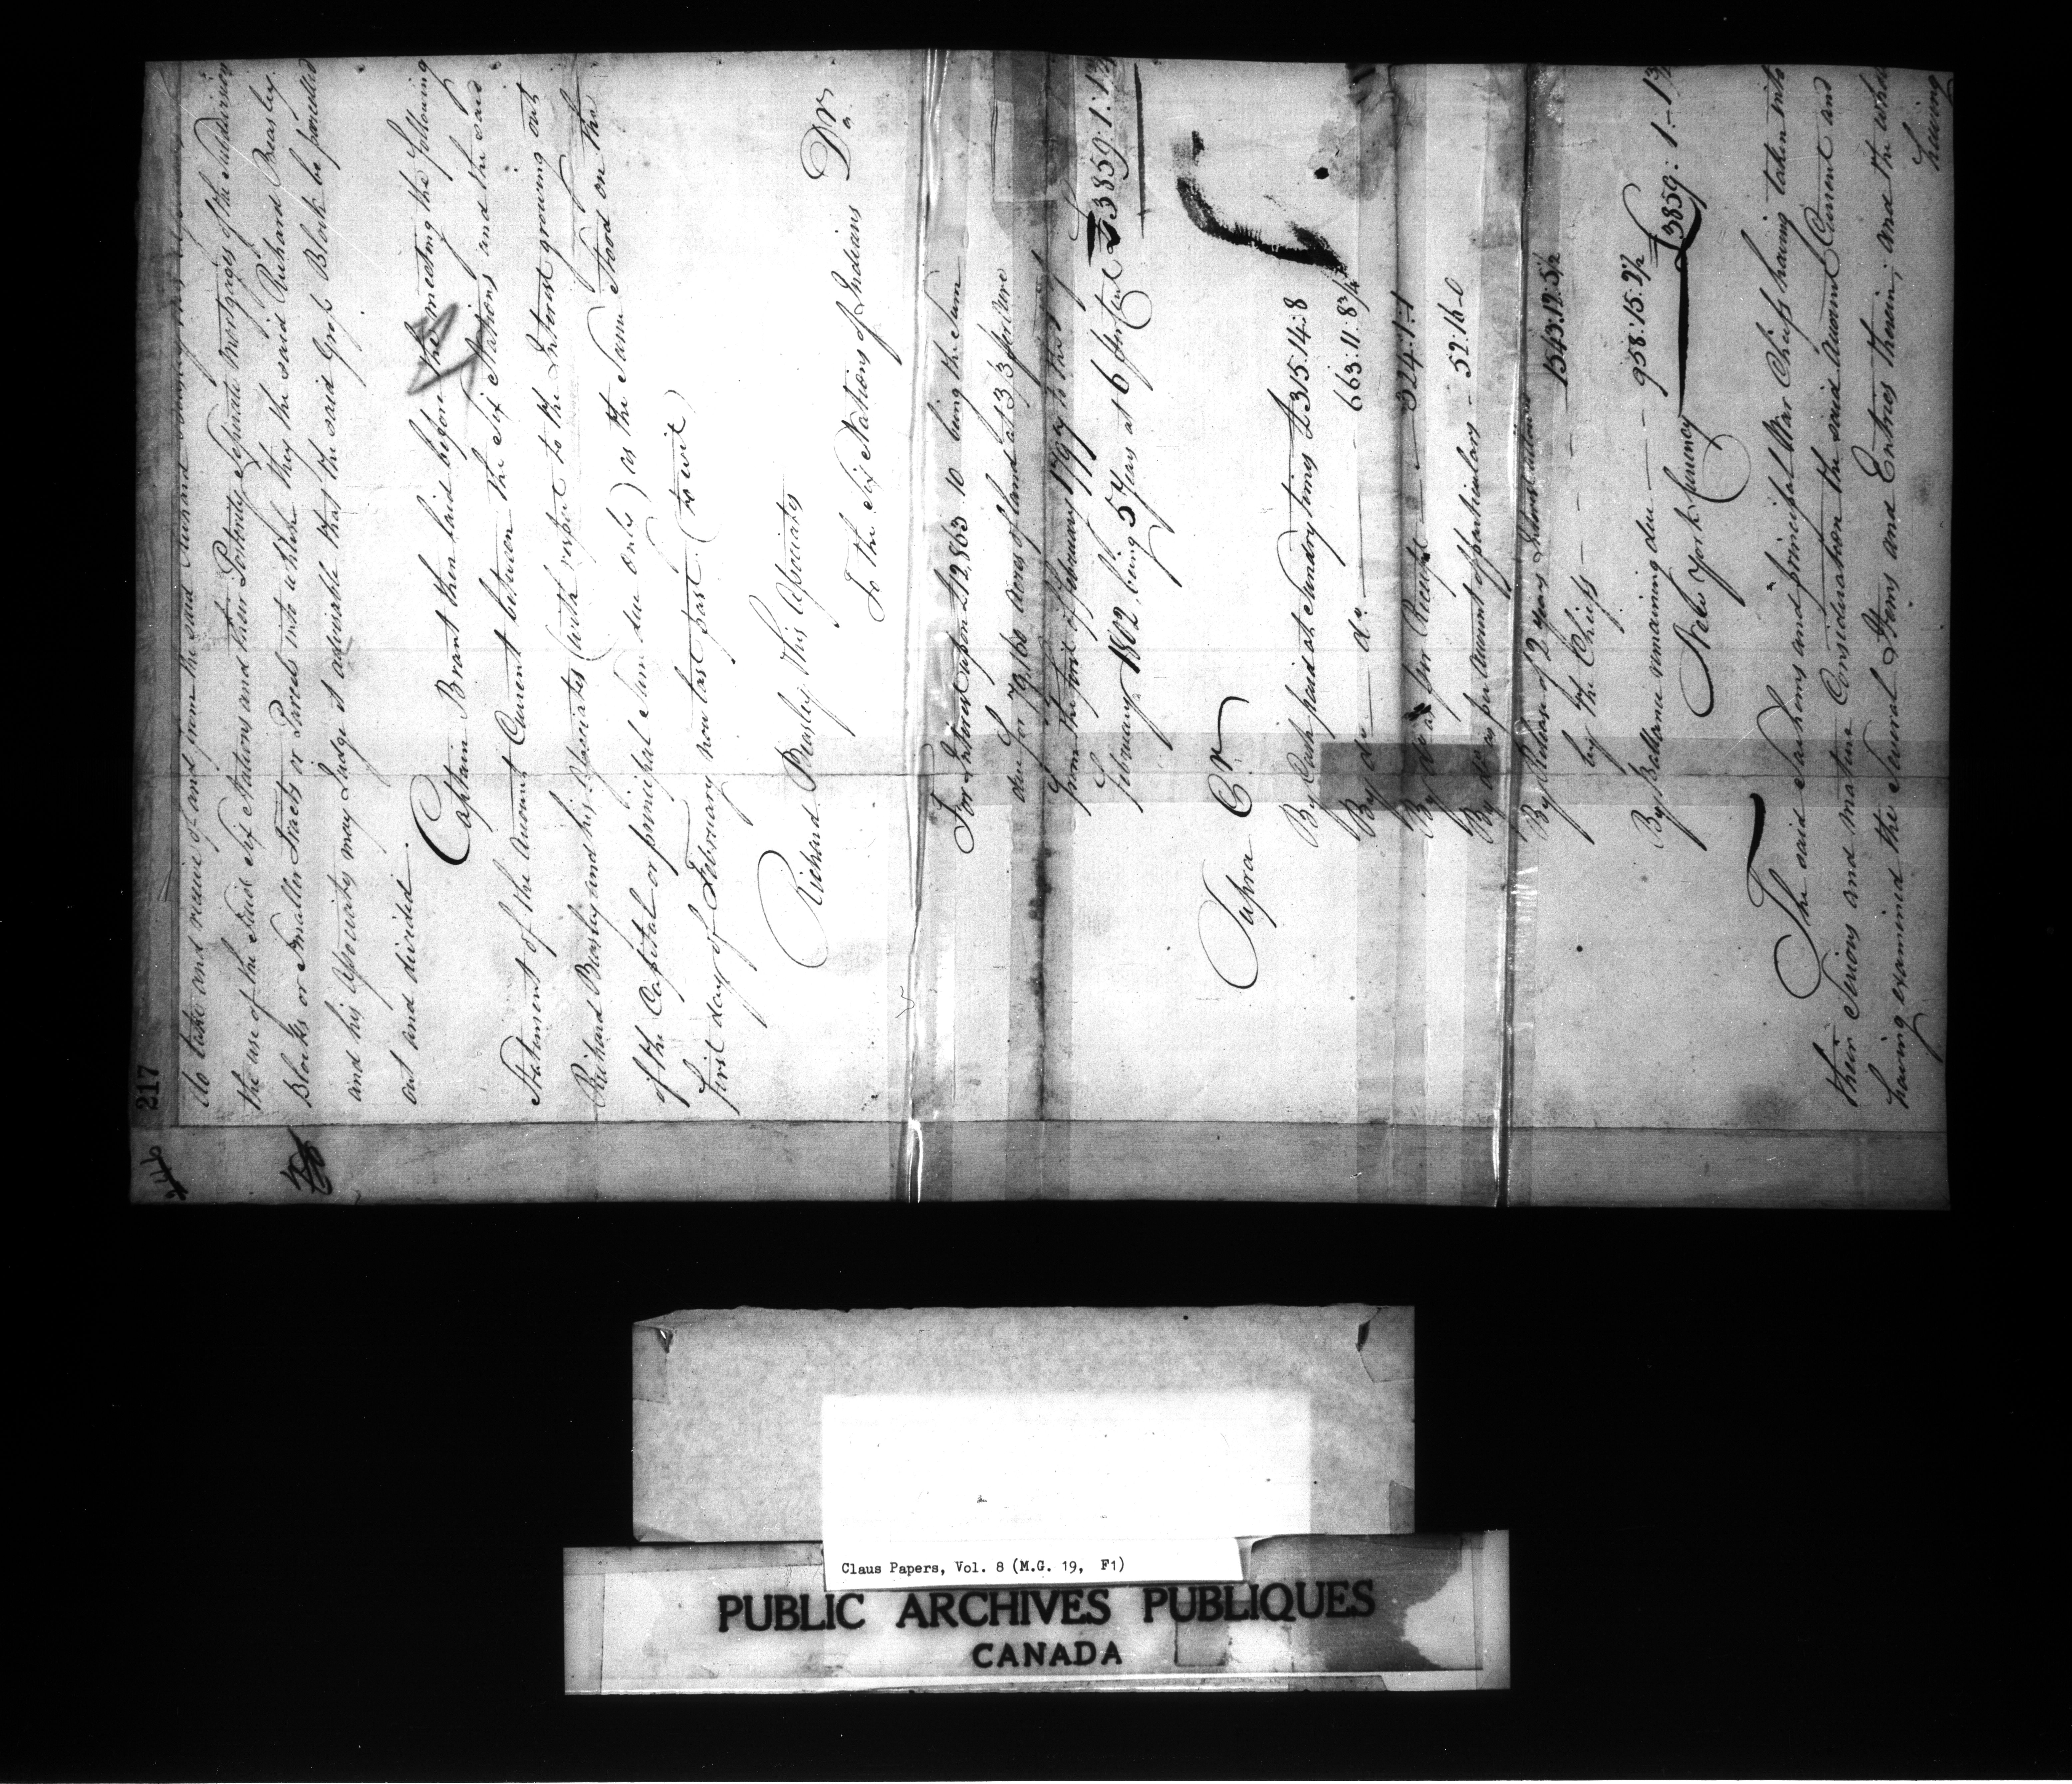 217
to take and receive of and from the said Richard Beasley his
the use of the said Six Nations and their Posterity Separate Mortgages of the Subdivision
Blocks or Smaller Tracts or Parcels into which they the said Richard Beasley
and his Associates may Judge it adviseable that the said Gross Block be parcelled
out and divided.
Captain Brant then laid before the meeting the following
Statement of the Account Current between the Six Nations and the said
Richard Beasley and his Associates (with respect to the Interest growing out
of the Capital or principal Sum due only) as the Same Stood on the
first day of February now last past (to wit)
Richard Beasley & his Associates
To the Six Nations of Indians Dr.
For Interest upon £12,863 10 being the Sum
due for 79,160 Acres of Land at 3/3 per Acre
from the first of February 1797 to the first of
February 1802, being 5 Years at 6 per Cent £3859:1:
Supra Cr.
By Cash paid at Sundry times £315:14:8
By do — do — 663:11:8¾
By do as per Receipt — 324:1:1
By do as per Account of particulars — 52:16:0
By Release of 2 Years Interest
by the Chiefs — 1543:12:5½
By Ballance remaining due — 958:15:2½
New York Currency £3859:1:
The said Sachems and principal War Chiefs having taken into
their Serious and mature Consideration the said Account Current and
having examined the Several Items and Entries therein, and the whole
having
Claus Papers, Vol. 8 (M.G. 19, F1)
PUBLIC ARCHIVES PUBLIQUES
CANADA